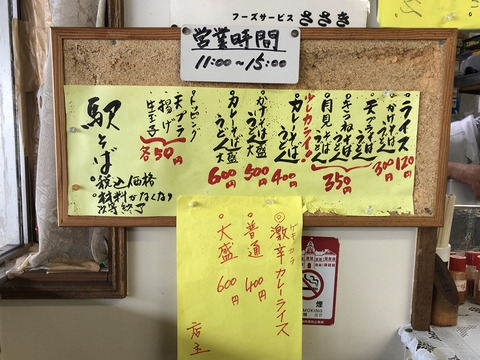 フーズサービス ささき
営業時間
11:00～15:00
ライス 120円
かけそば うどん 300円
天プラそば うどん
きつねそば うどん
月見そば うどん 350円
ツレカライ!
カレーそば うどん 400円
かけそば うどん 大盛 500円
カレーそば うどん 大盛 600円
トッピング
天プラ
揚げ
生玉子 各50円
駅そば
税込価格
材料がなくなり
次第終了
◎激辛カレーライス
ゲキカラ
・普通 400円
・大盛 600円
店主
禁煙
NO SMOKING